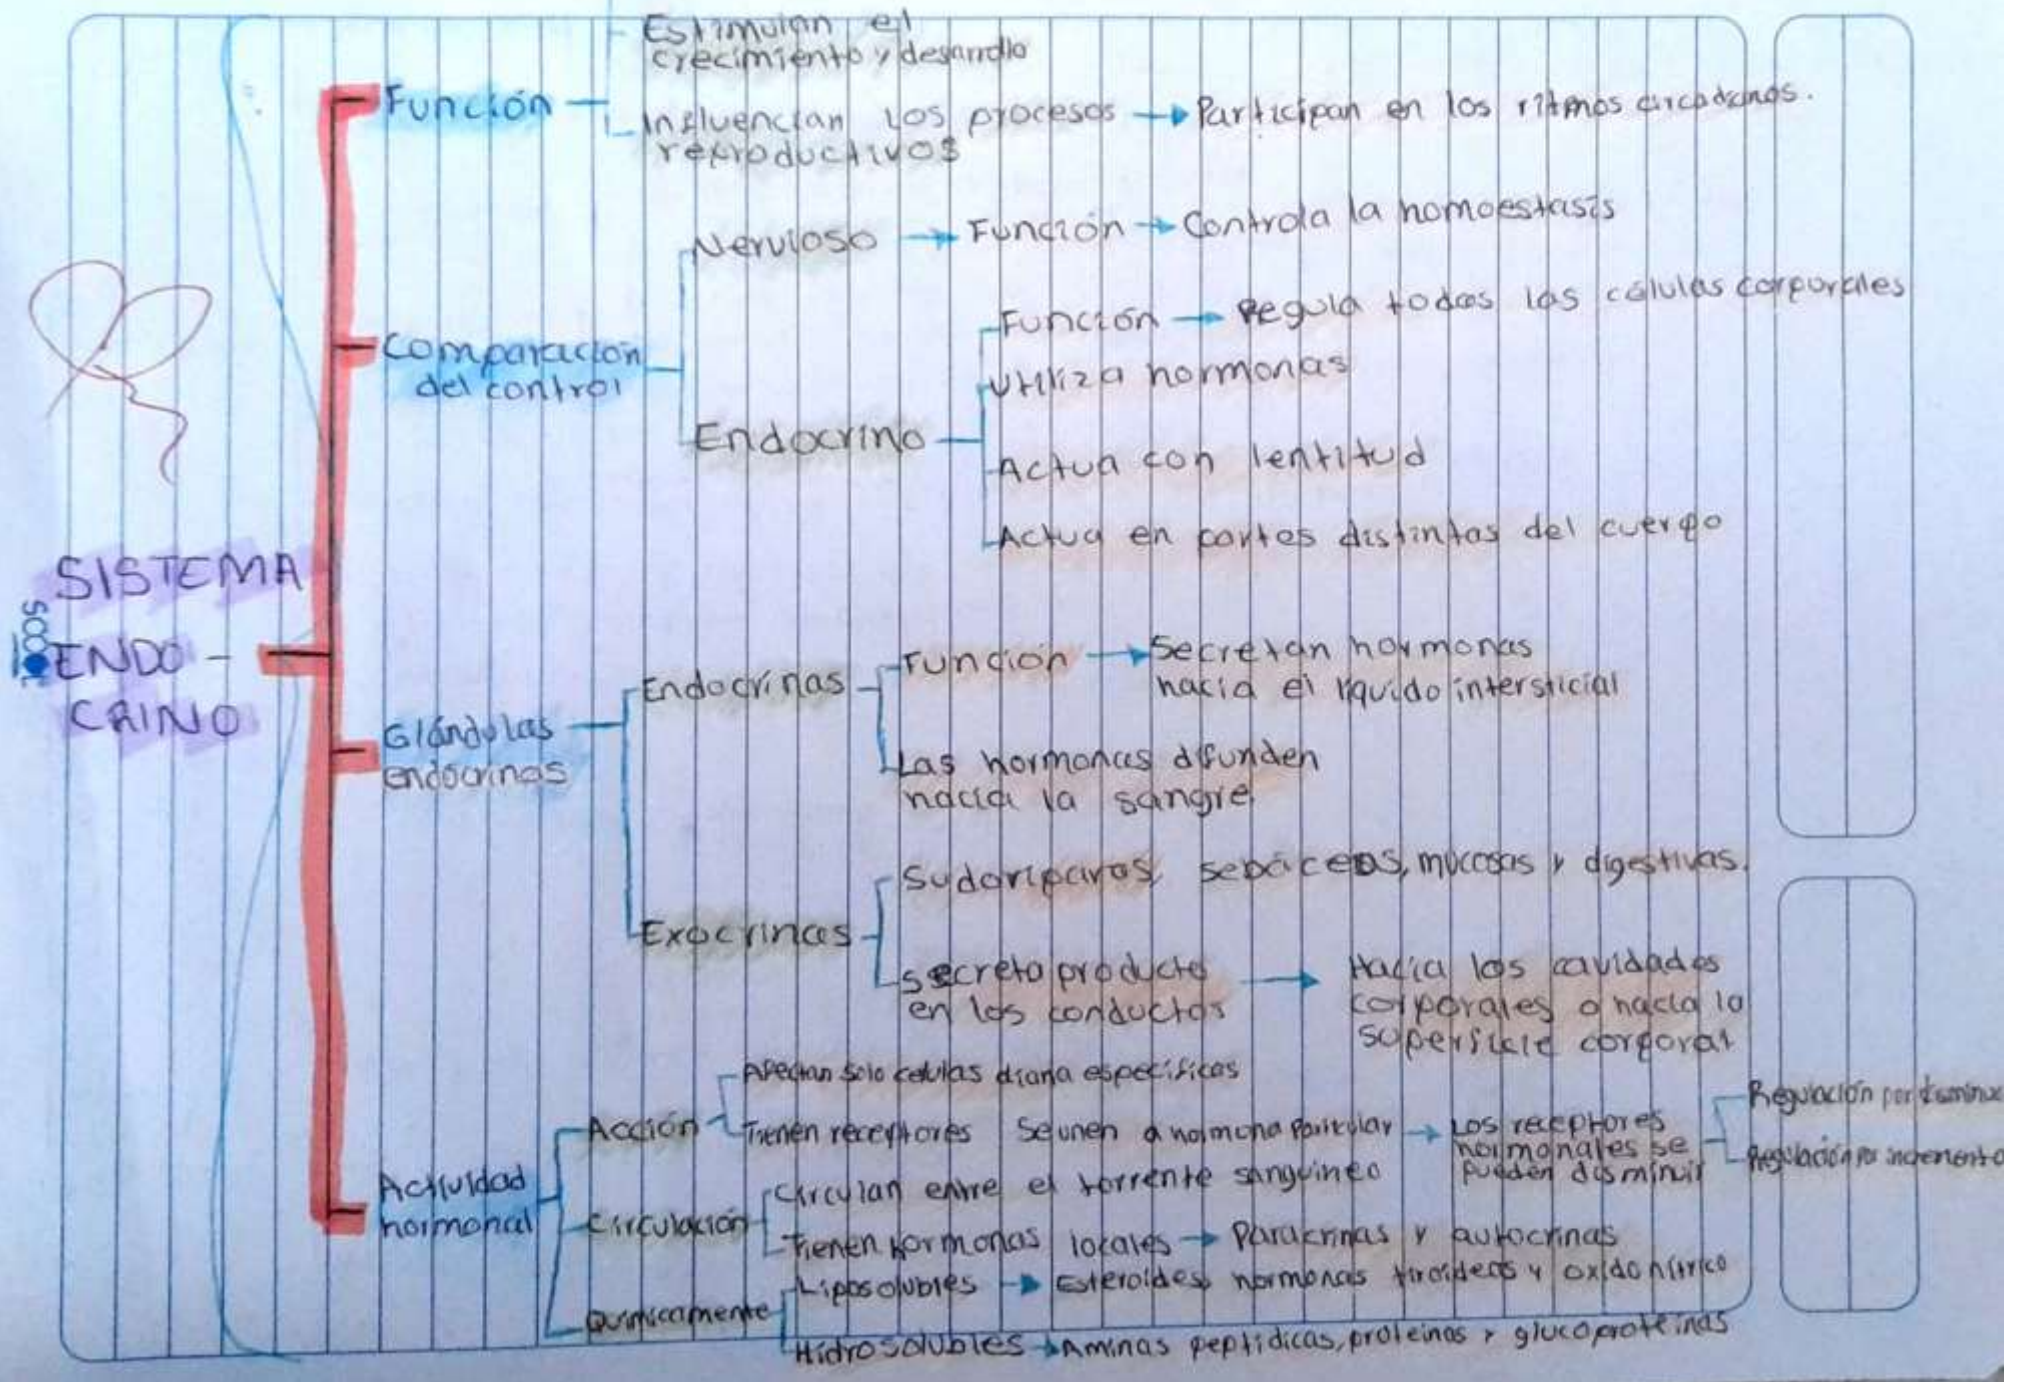 Estimulan el
crecimiento y desarrollo
Función
Influencian los procesos
reproductivos
Participan en los ritmos circadianos.
Nervioso
Función
Controla la homoestasis
Comparación
del control
Endocrino
Función
Regula todas las células corporales
Utiliza hormonas
Actua con lentitud
Actua en partes distintas del cuerpo
SISTEMA
ENDO-
CRINO
Glándulas
endocrinas
Endocrinas
Función
Secretan hormonas
hacia el liquido intersticial
Las hormonas difunden
hacia la sangre
Exocrinas
Sudoriparas, sebáceas, mucosas y digestivas.
Secreta producto
en los conductos
Hacia las cavidades
corporales o hacia la
superficie corporal
Actividad
hormonal
Acción
Afectan solo celulas diana específicas
Tienen receptores se unen a hormona particular
Los receptores
hormonales se
pueden disminuir
Regulación por disminuc
Regulación por incremento
Circulación
Circulan entre el torrente sanguineo
Tienen hormonas locales
Paracrinas y autocrinas
Quimicamente
Liposolubles
Esteroides, hormonas tiroideas y oxido nitrico
Hidrosolubles
Aminas peptidicas, proteinas y glucoproteinas